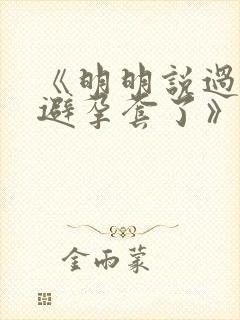 《明明說過
避孕套了》
金雨蒙